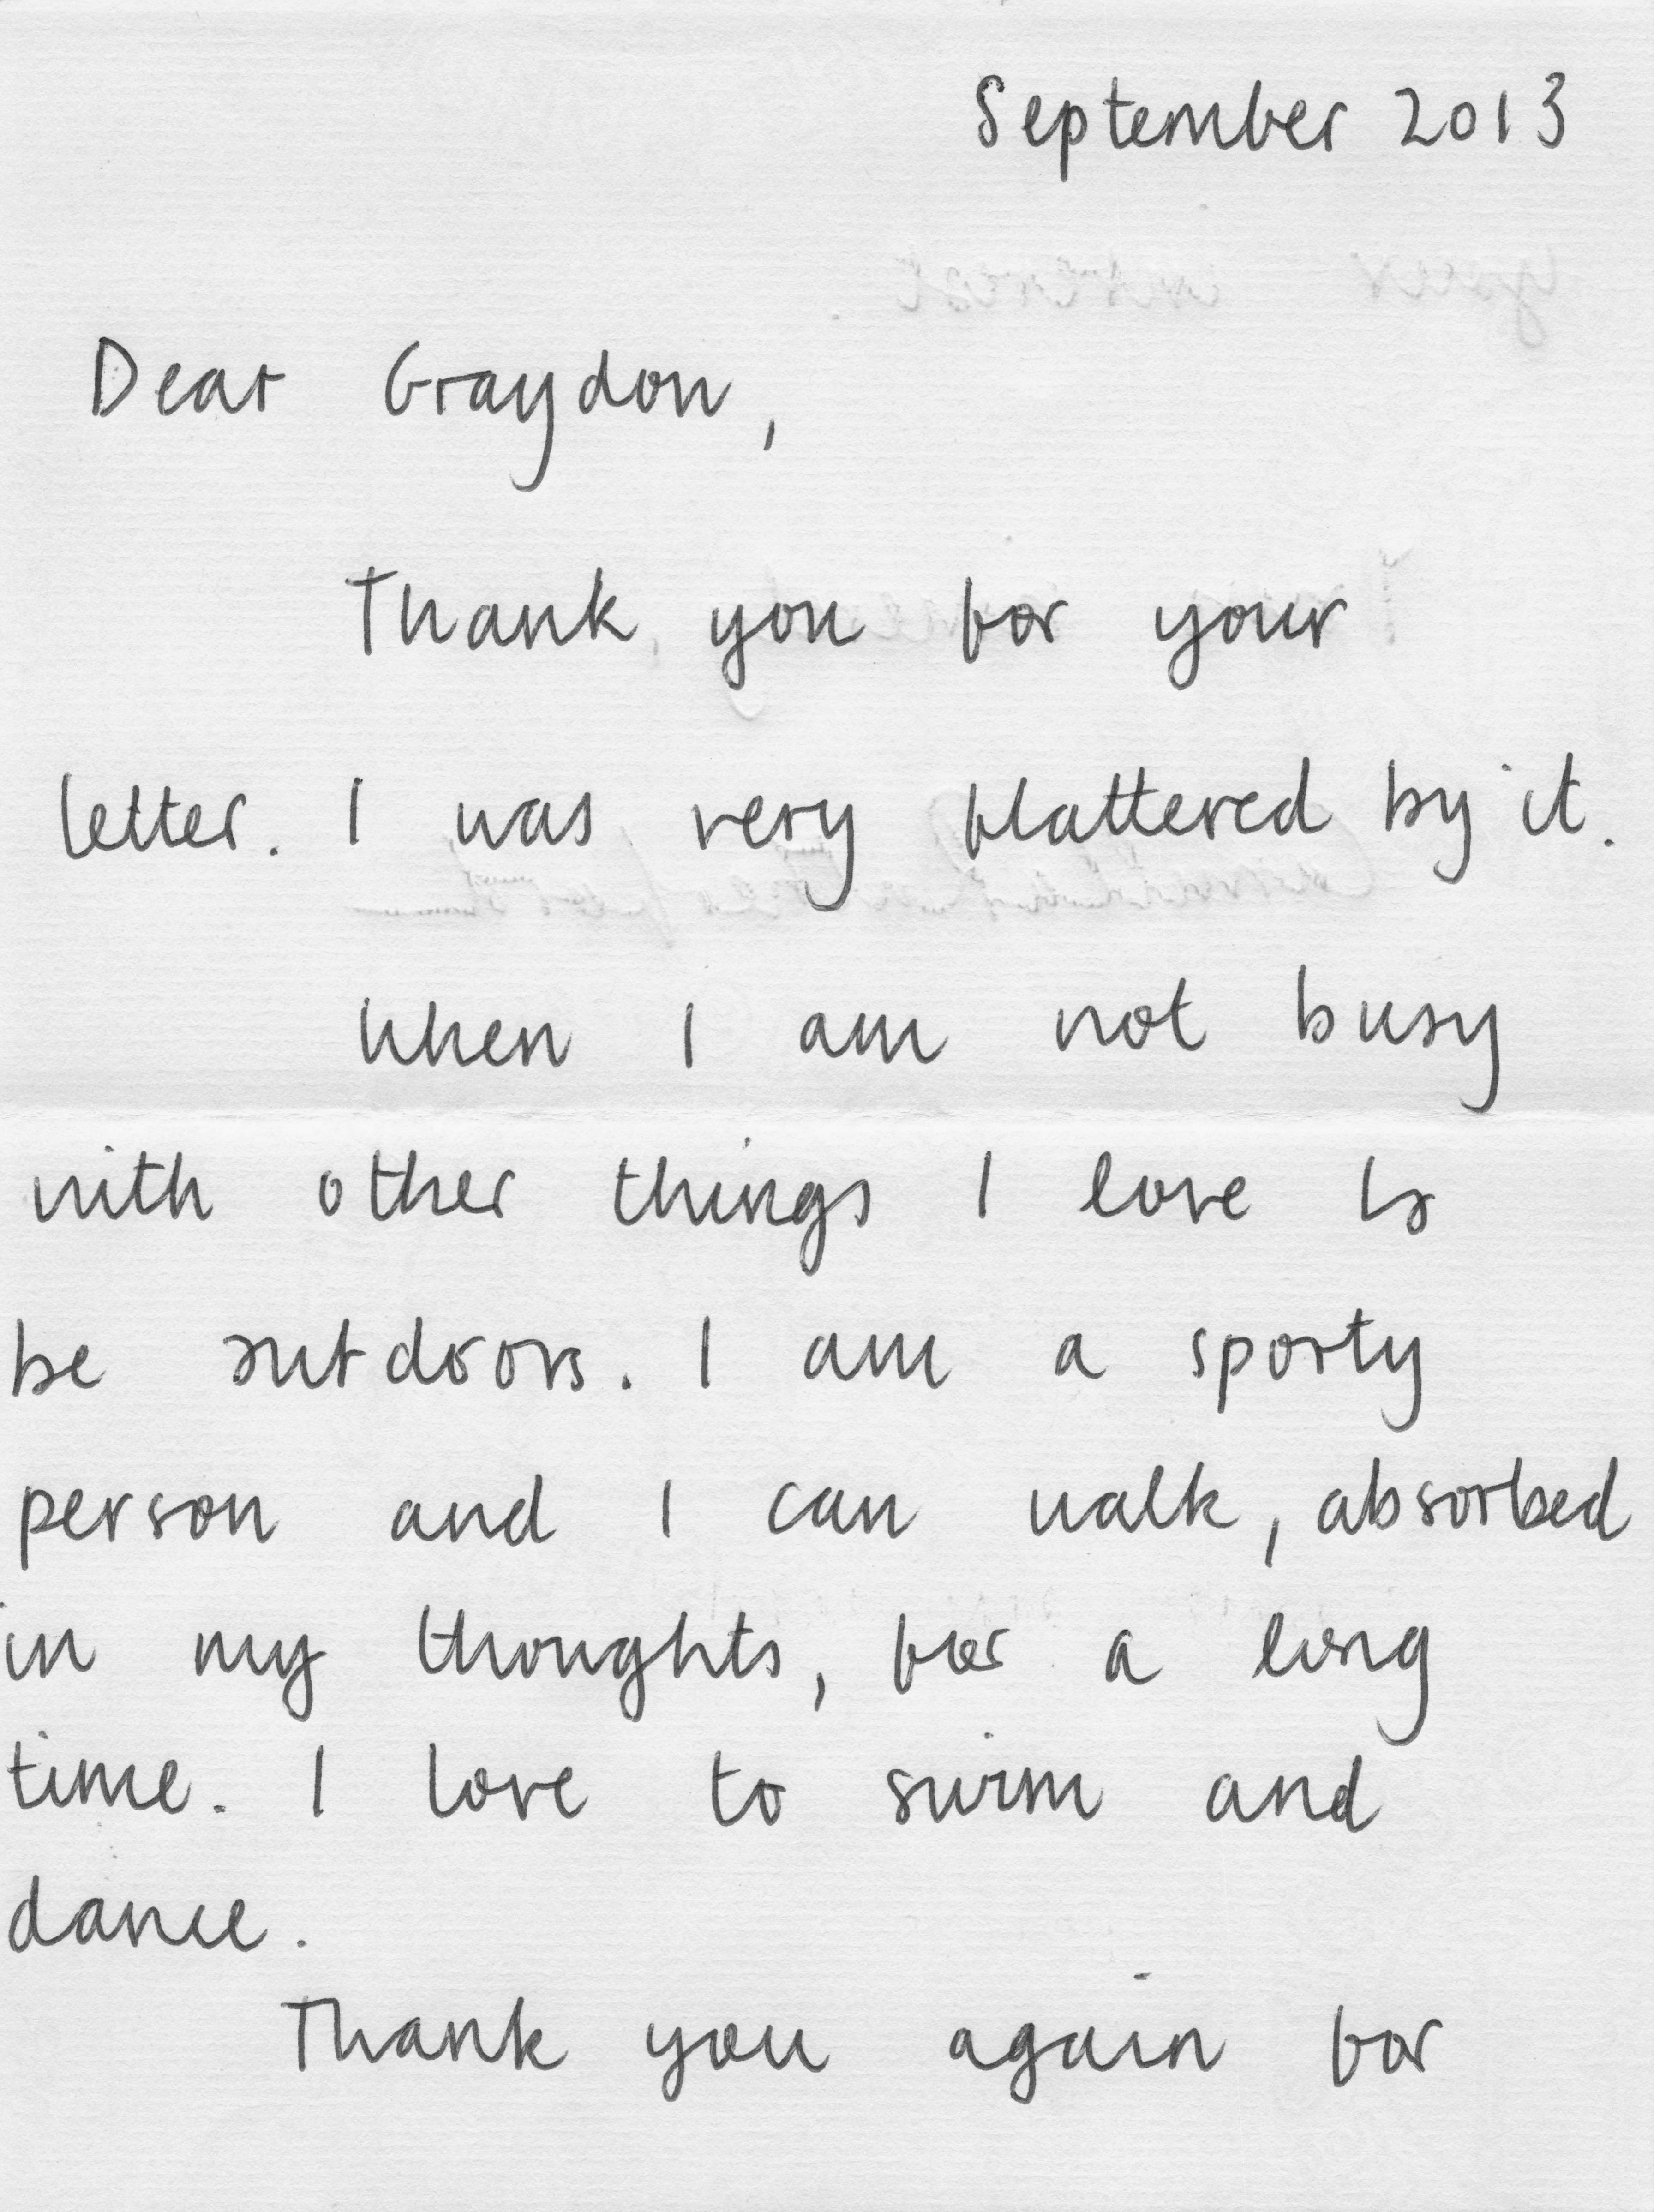 September 2013
your interest.
Dear Graydon,
Thank you for your
letter. I was very flattered by it.
When I am not busy
with other things I love to
be outdoors. I am a sporty
person and I can walk, absorbed
in my thoughts, for a long
time. I love to swim and
dance.
Thank you again for